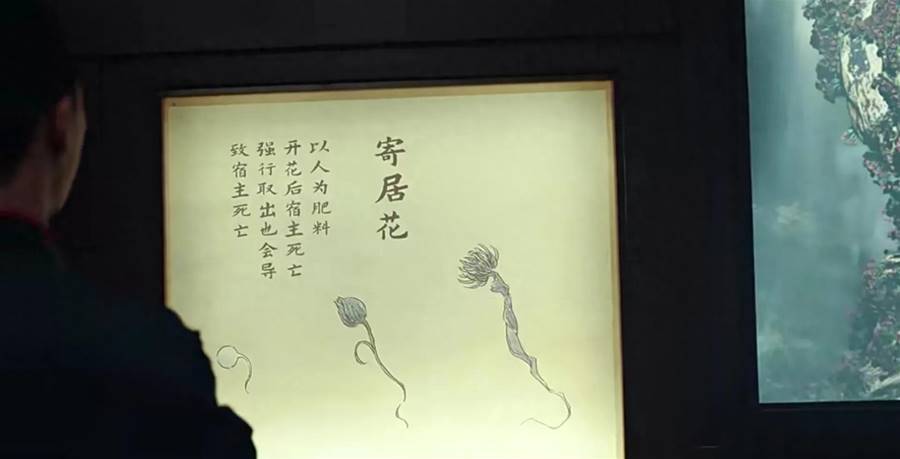 寄居花
以人为肥料
开花后宿主死亡
强行取出也会导
致宿主死亡